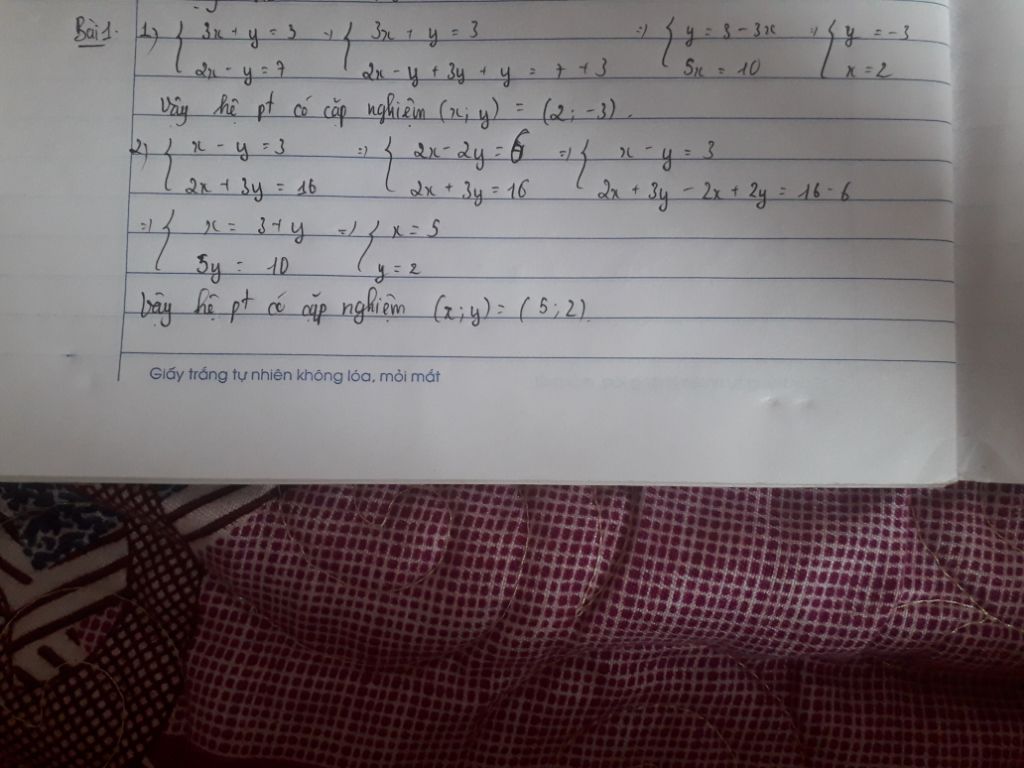 Bài 1. 1) { 3x + y = 3 => { 3x + y = 3 => { y = 3 - 3x => { y = -3
2x - y = 7 2x - y + 3y + y = 7 + 3 5x = 10 x = 2
Vậy hệ pt có cặp nghiệm (x; y) = (2; -3).
2) { x - y = 3 => { 2x - 2y = 6 => { x - y = 3
2x + 3y = 16 2x + 3y = 16 2x + 3y - 2x + 2y = 16 - 6
=> { x = 3 + y => { x = 5
5y = 10 y = 2
Vậy hệ pt có cặp nghiệm (x; y) = (5; 2).
Giấy trắng tự nhiên không lóa, mỏi mắt